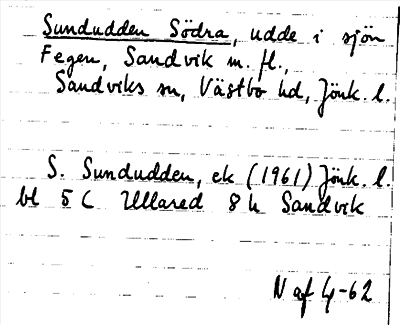 Sundudden Södra, udde i sjön
Fegen, Sandvik m. fl.,
Sandviks sn, Västbo hd, Jönk. l.
S. Sundudden, ek (1961) Jönk. l.
bl 5 C Ullared 8 h Sandvik
N af 4-62